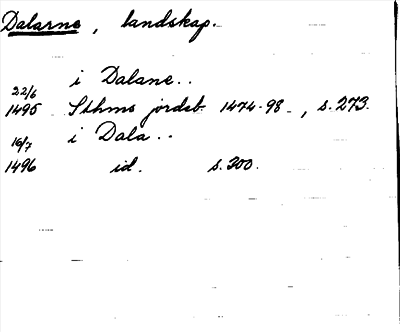 Dalarne, landskap.
i Dalane..
22/6
1495 Sthms jordeb. 1474-98., s. 273.
i Dala..
16/7
1496 id. s. 300.